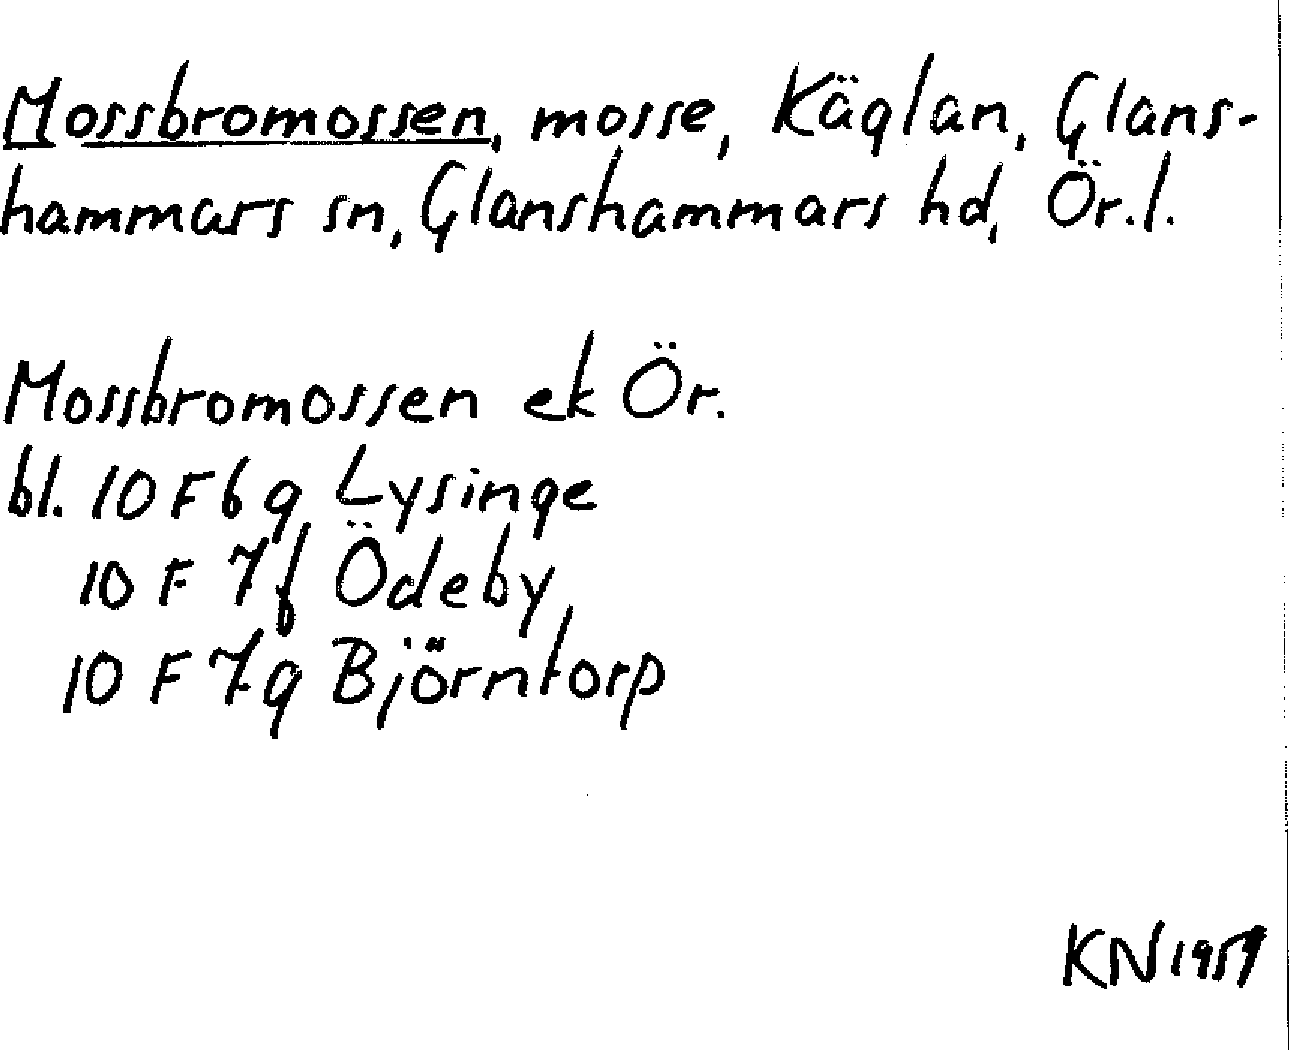 Mossbromossen, mosse, Käglan, Glans-
hammars sn, Glanshammars hd, Ör.l.
Mossbromossen ek Ör.
bl. 10 F 6 g Lysinge
10 F 7 f Ödeby
10 F 7 g Björntorp
KN 1959